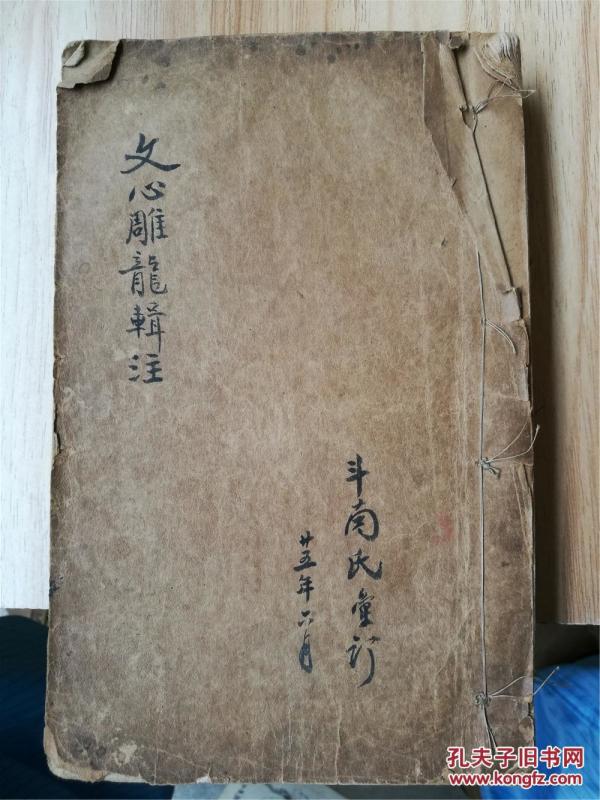 文心雕龍輯注
斗南氏彙訂
廿五年六月
孔夫子旧书网
www.kongfz.com